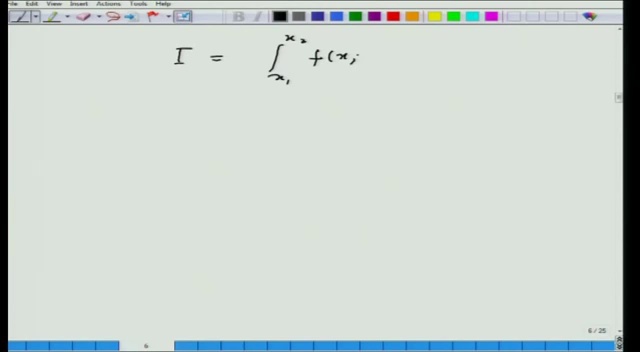 File Edit View Insert Actions Tools Help
I = ∫_{x₁}^{x₂} f(x;
6 / 25
6